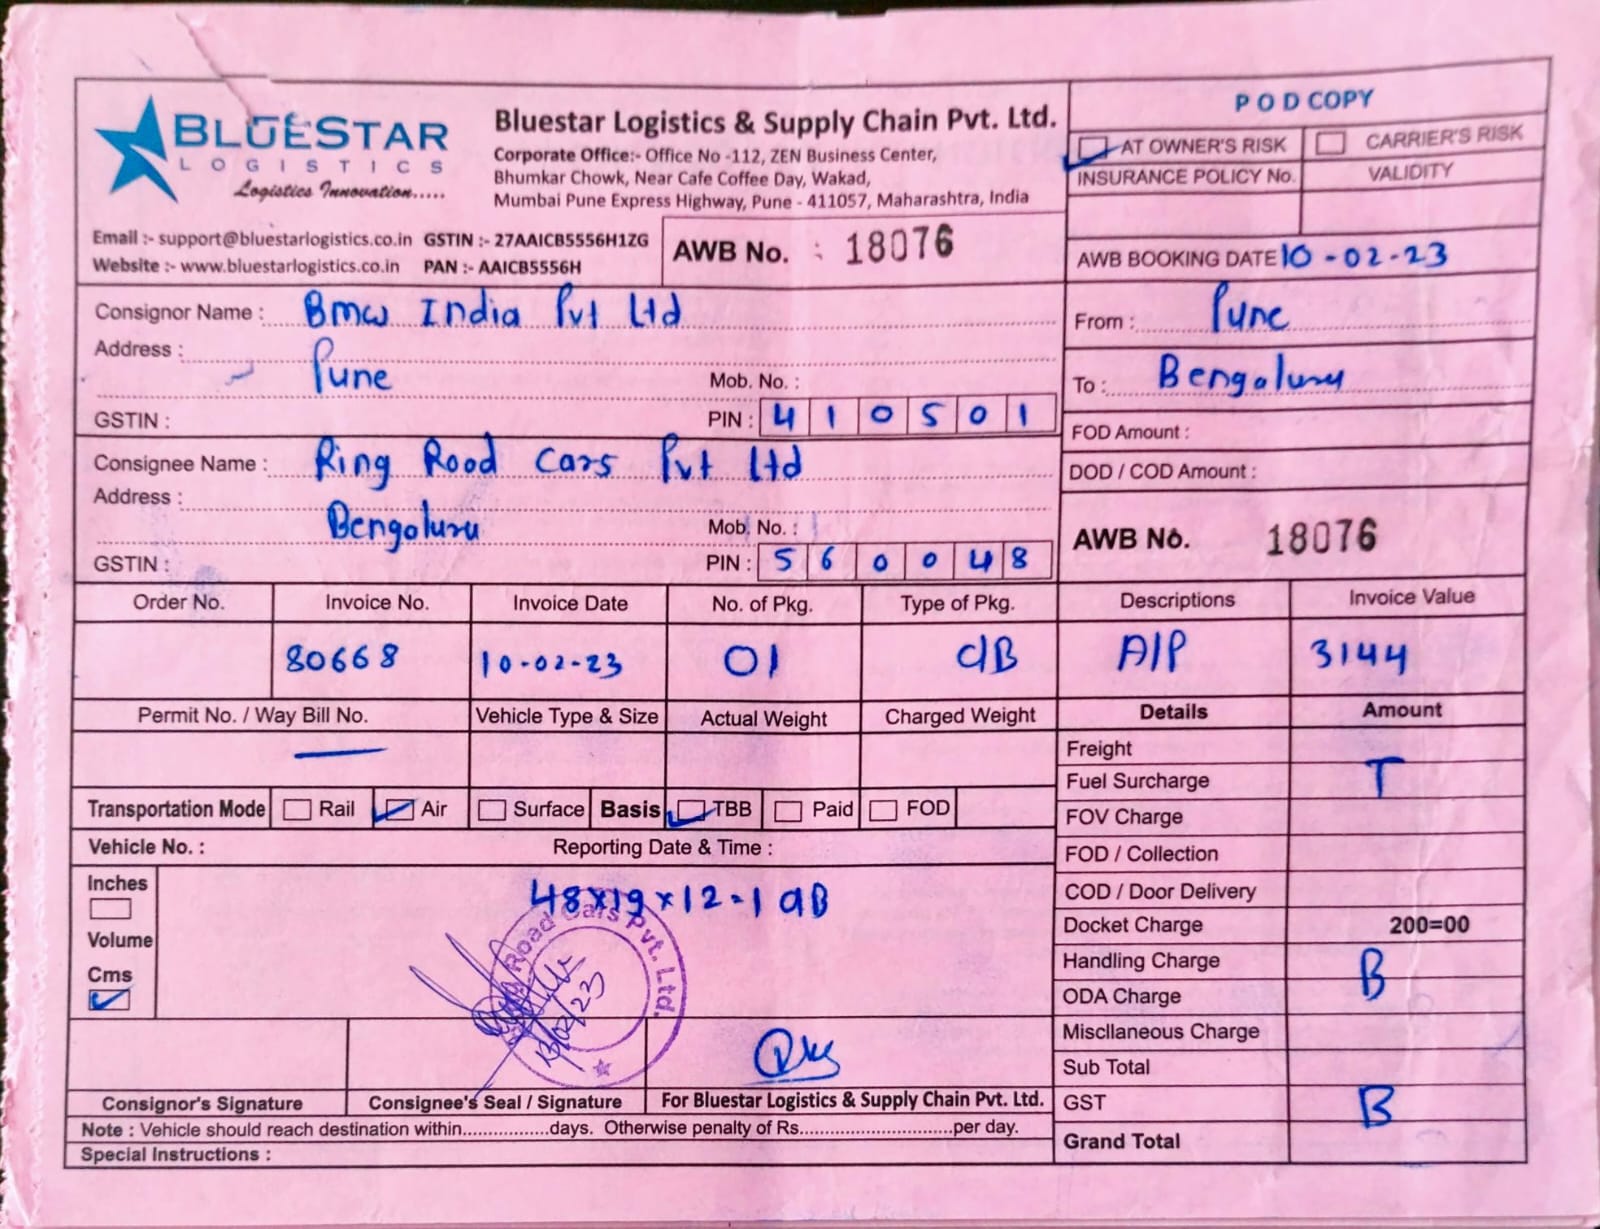 BLUESTAR
LOGISTICS
Logistics Innovation.....
Bluestar Logistics & Supply Chain Pvt. Ltd.
Corporate Office:- Office No -112, ZEN Business Center,
Bhumkar Chowk, Near Cafe Coffee Day, Wakad,
Mumbai Pune Express Highway, Pune - 411057, Maharashtra, India
POD COPY
AT OWNER'S RISK CARRIER'S RISK
INSURANCE POLICY No. VALIDITY
Email :- support@bluestarlogistics.co.in GSTIN :- 27AAICB5556H1ZG
Website :- www.bluestarlogistics.co.in PAN :- AAICB5556H
AWB No. : 18076
AWB BOOKING DATE 10-02-23
Consignor Name : BMW India Pvt Ltd
Address : Pune
Mob. No. :
GSTIN : PIN : 410501
From : Pune
To : Bengaluru
FOD Amount :
DOD / COD Amount :
Consignee Name : Ring Road Cars Pvt Ltd
Address : Bengaluru
Mob. No. :
GSTIN : PIN : 560048
AWB No. 18076
Order No. Invoice No. Invoice Date No. of Pkg. Type of Pkg. Descriptions Invoice Value
80668 10-02-23 01 C/B A/P 3144
Permit No. / Way Bill No. Vehicle Type & Size Actual Weight Charged Weight Details Amount
Freight
Fuel Surcharge T
Transportation Mode Rail Air Surface Basis TBB Paid FOD
FOV Charge
Vehicle No. : Reporting Date & Time :
FOD / Collection
COD / Door Delivery
Docket Charge 200=00
Handling Charge B
ODA Charge
Miscllaneous Charge
Sub Total
GST B
Grand Total
Inches
Volume
Cms
48x19x12-1 CB
Road Cars Pvt. Ltd.
13/02/23
Consignor's Signature Consignee's Seal / Signature For Bluestar Logistics & Supply Chain Pvt. Ltd.
Note : Vehicle should reach destination within.................days. Otherwise penalty of Rs..............................per day.
Special Instructions :